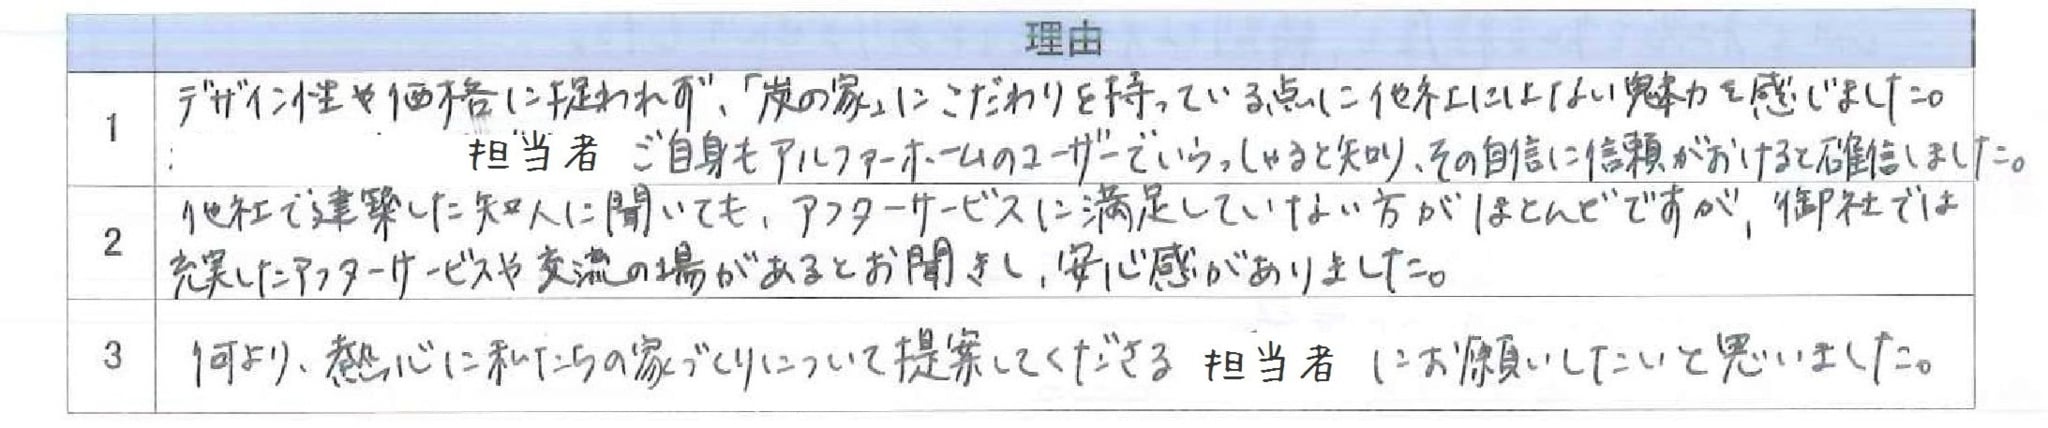 理由
1
デザイン性や価格に捉われず、「炭の家」にこだわりを持っている点に他社にはない魅力を感じました。
担当者 ご自身もアルファーホームのユーザーでいらっしゃると知り、その自信に信頼がおけると確信しました。
2
他社で建築した知人に聞いても、アフターサービスに満足していない方がほとんどですが、御社では
充実したアフターサービスや交流の場があるとお聞きし、安心感がありました。
3
何より、熱心に私たちの家づくりについて提案してくださる 担当者 にお願いしたいと思いました。